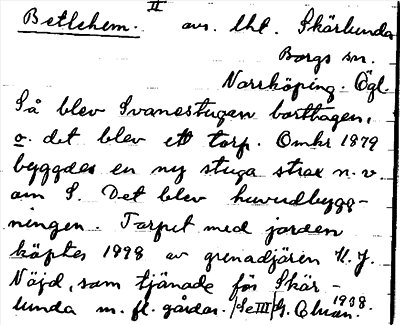 Betlehem. II avs. lht. Skärlunda
Borgs sn.
Norrköping. Ögl.
Så blev Svanestugan borttagen,
o. det blev ett torp. Omkr 1879
byggdes en ny stuga strax n. v.
om S. Det blev huvudbygg-
ningen. Torpet med jorden
köptes 1898 av grenadjären K. J.
Nöjd, som tjänade för Skär-
lunda m. fl. gårdar. /Se III/ G. 1938.